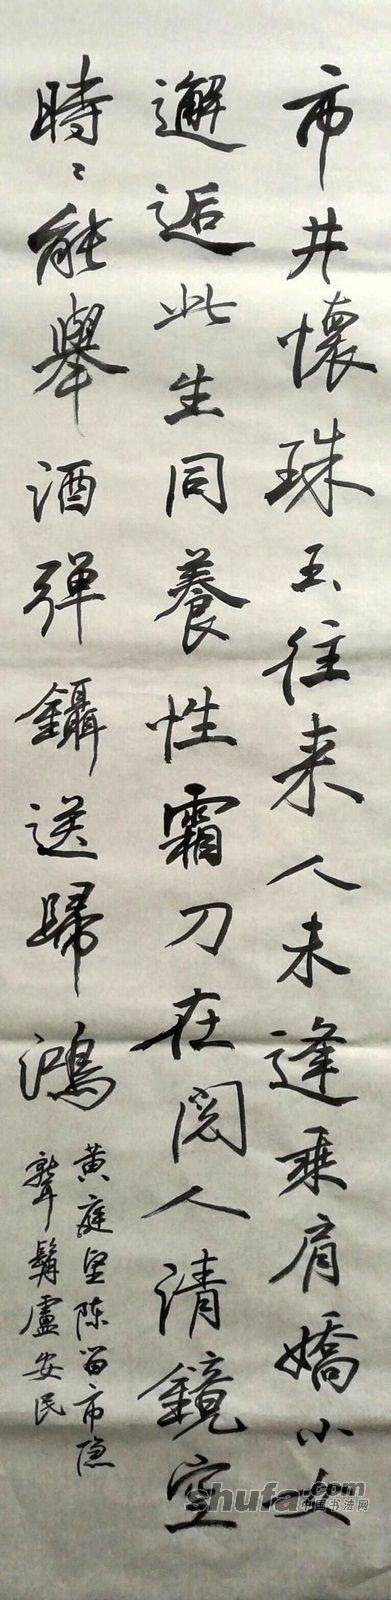 市井懷珠玉往来人未逢乘肩嬌小女
邂逅此生同養性霜刀在閱人清鏡空
時〻能舉酒弹鑷送歸鴻
黄庭坚陈留市隐
聋髯盧安民
shufa.com
中国书法网